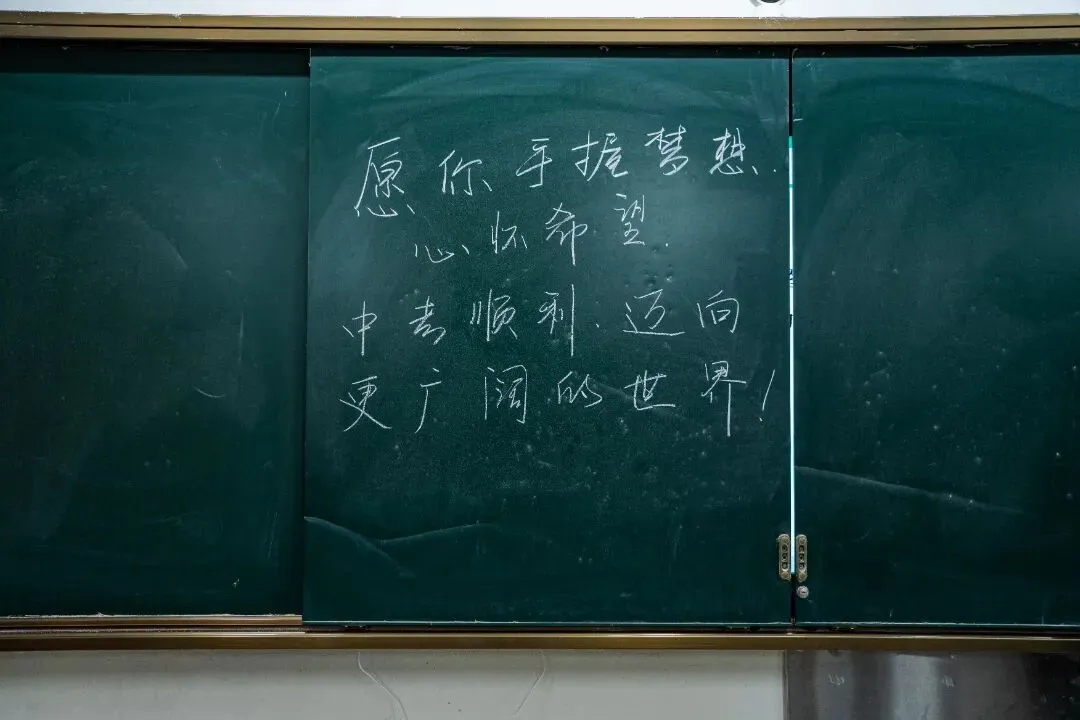 愿你手握梦想.
心怀希望.
中考顺利、迈向
更广阔的世界!